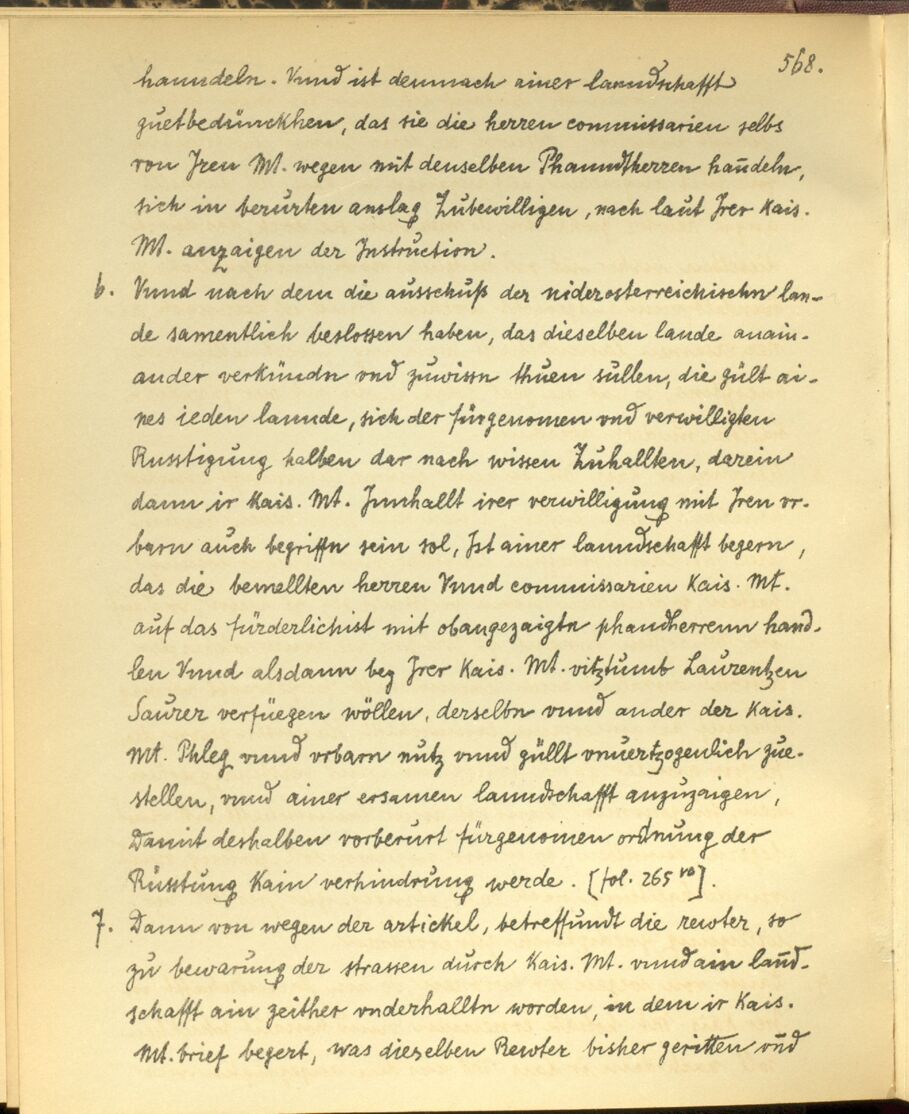 568.
hanndeln. Vnnd ist demnach ainer lanndschafft
guetbedünckhen, das sie die herren commissarien selbs
von Jren Mt. wegen mit denselben Phanndtherren hañdeln,
sich in berurten anslag Zubewilligen, nach laut Jrer Kais.
Mt. anzaigen der Instruction.
6. Vnnd nach dem die ausschuß der niderosterreichischn lan-
de samentlich beslossen haben, das dieselben lande anain-
ander verkündn vnd zuwissn thuen sullen, die gült ai-
nes ieden lannde, sich der fürgenomen vnd verwilligten
Russtigung halben dar nach wissen Zuhallten, darein
dann ir Kais. Mt. Jnnhallt irer verwilligung mit Jren vr-
barn auch begriffn sein sol, Jst ainer lanndschafft begern,
das die bemellten herren Vnnd commissarien Kais. Mt.
auf das fürderlichist mit obangezaigtn phandherrenn hand-
len Vnnd alsdann bey Jrer Kais. Mt. vitztumb Laurentzen
Saurer verfüegen wöllen, derselbn vnnd ander der Kais.
Mt. Phleg vnnd vrbarn nutz vnnd güllt vnuertzogenlich zue-
stellen, vnnd ainer ersamen lanndschafft anzuzaigen,
Damit deshalben vorberurt fürgenomen ordnung der
Rüsstung Kain verhindrung werde. [fol. 265 va].
7. Dann von wegen der artickel, betreffundt die rewter, so
zu bewarung der strassen durch Kais. Mt. vnnd ain lañd-
schafft ain zeither vnderhalltn worden, in dem ir Kais.
Mt. brief begert, was dieselben Rewter bisher geritten vnd